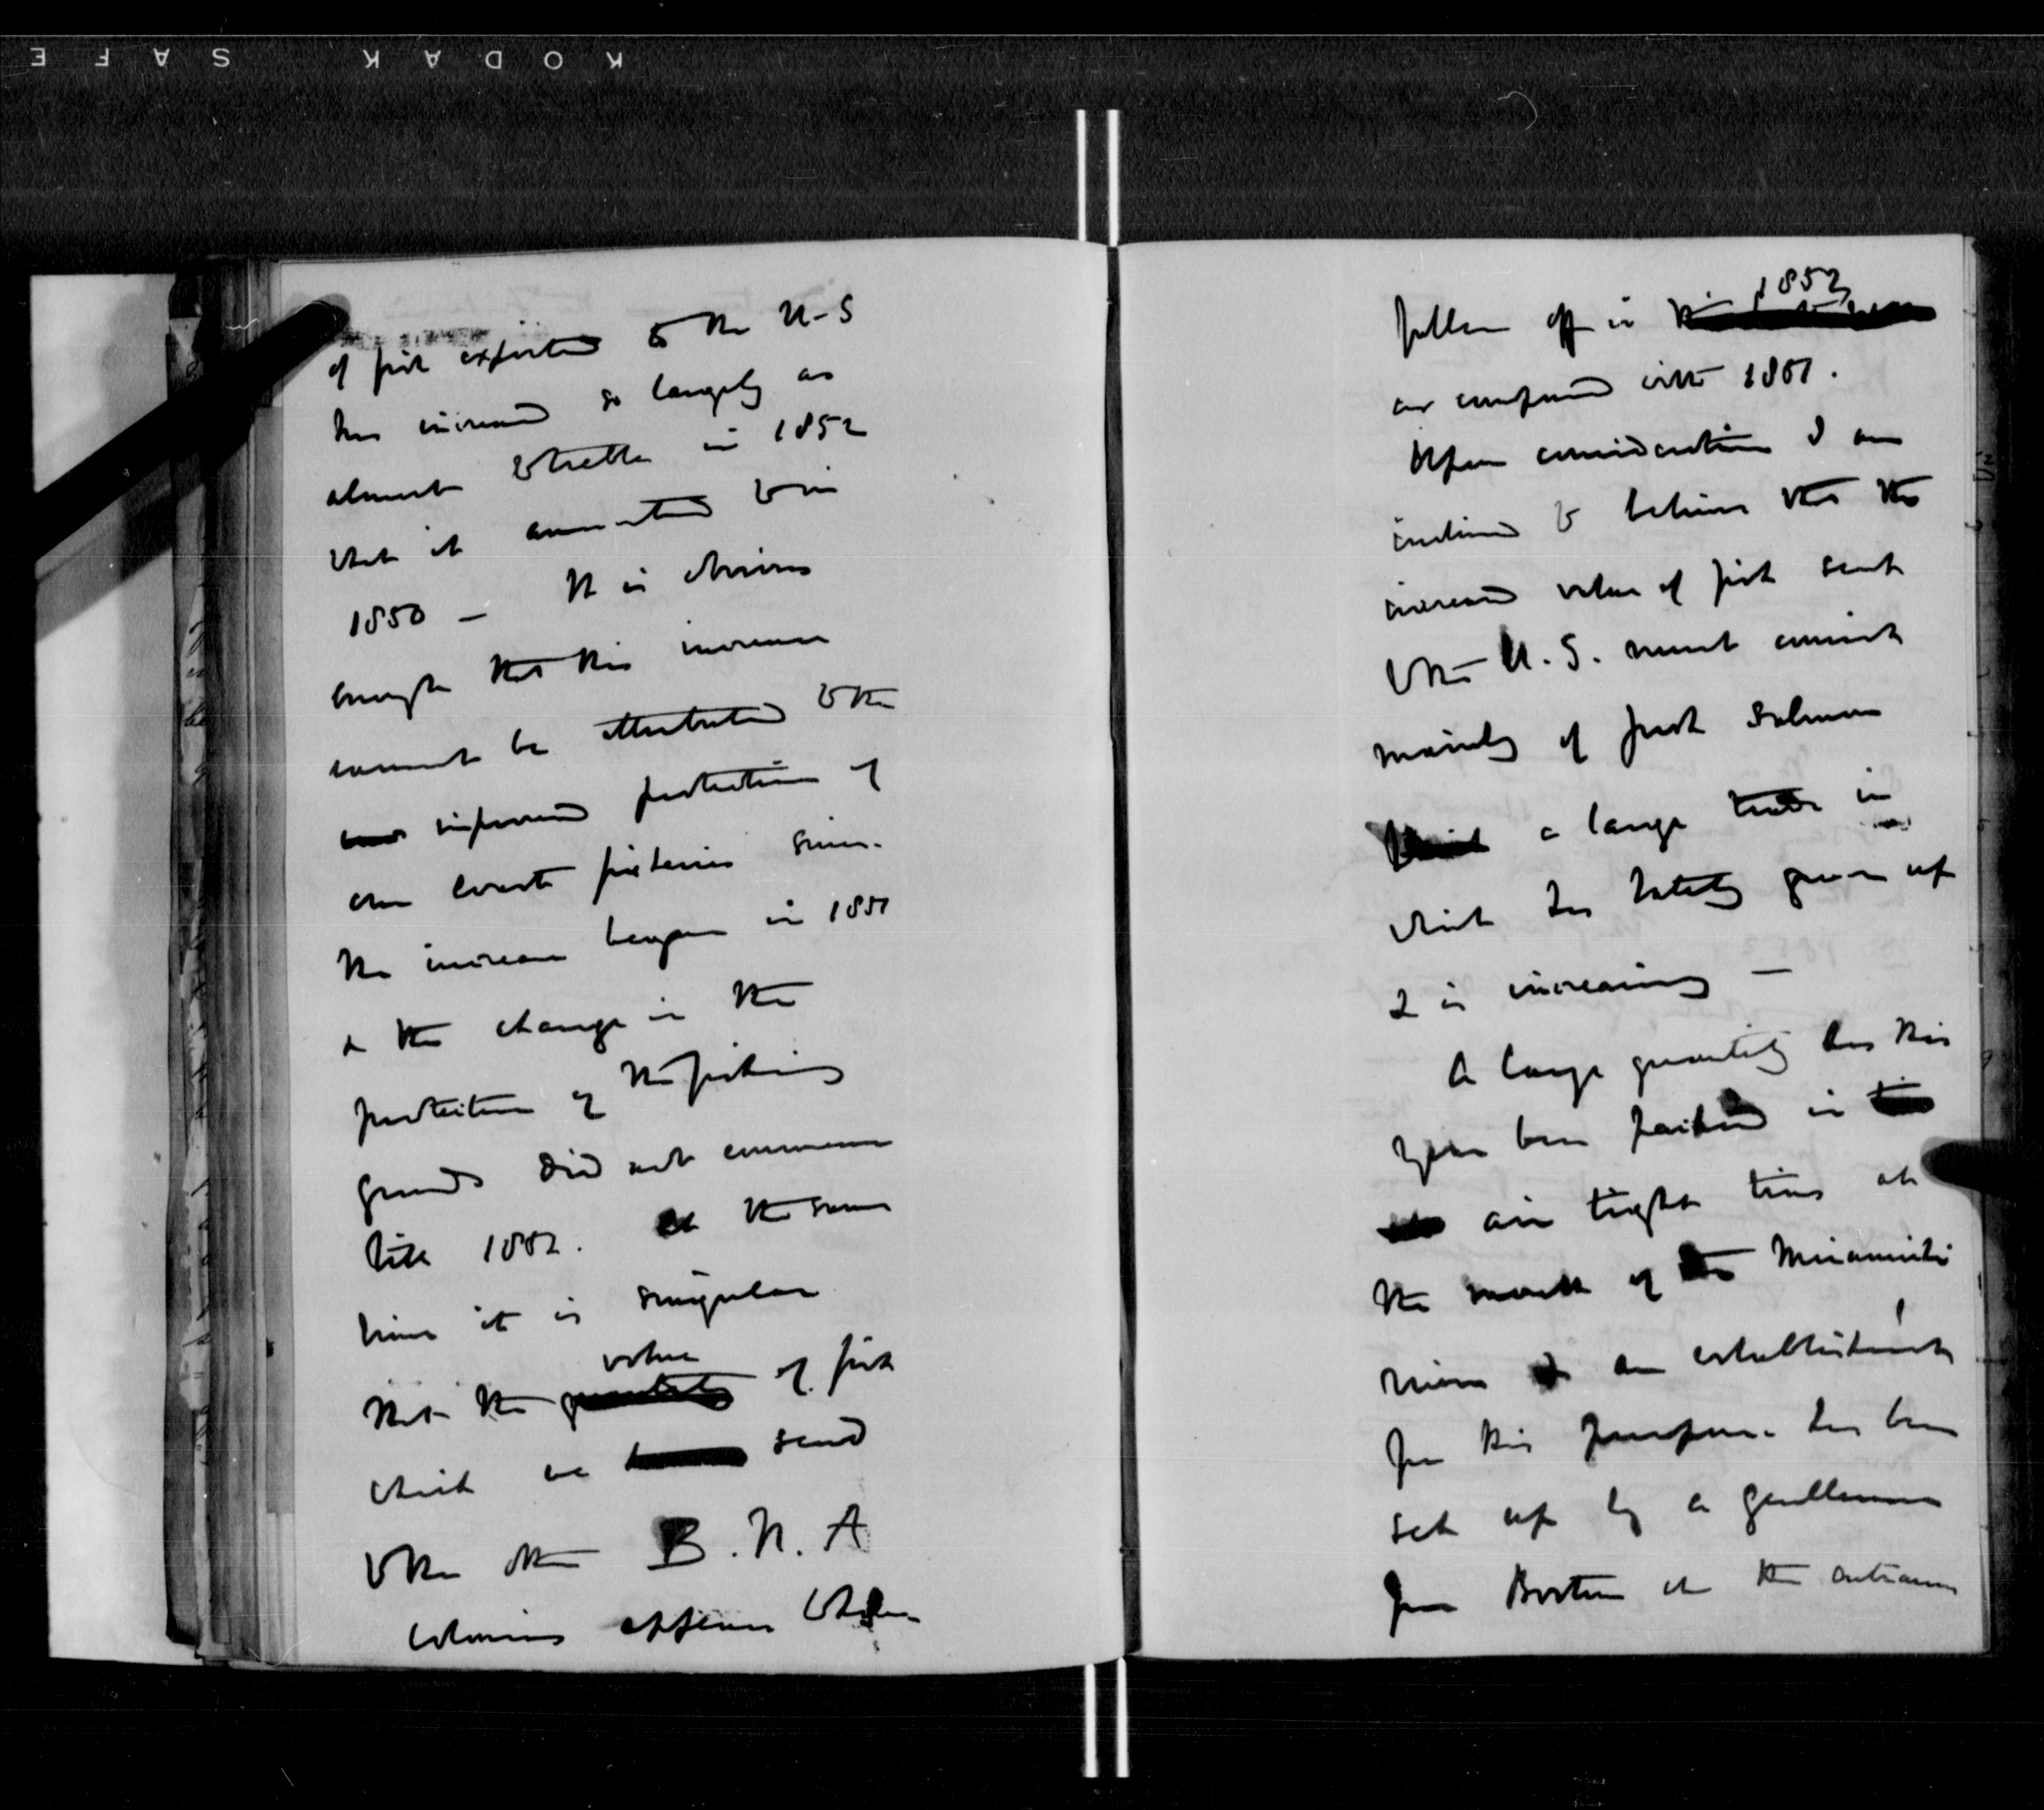 KODAK SAFE
of fish exported to the U-S
has increased so largely as
almost to treble in 1852
what it amounted to in
1850 - It is obvious
enough that this increase
cannot be attributed to the
improved protection of
our coast fisheries since
the increase began in 1851
& the change in the
protection of the fishing
grounds did not commence
till 1852. At the same
time it is singular
value
that the quantity of fish
which we send
to the other B.N.A
Colonies appears to have
1852
fallen off in
as compared with 1851.
Upon consideration I am
inclined to believe that the
increased value of fish sent
to the U.S. must consist
mainly of fresh Salmon
a large trade in
which has lately grown up
& is increasing -
A large quantity has this
year been packed in
air tight tins at
the mouth of the Miramichi
river & an establishment
for this purpose has been
set up by a gentleman
from Boston at the entrance